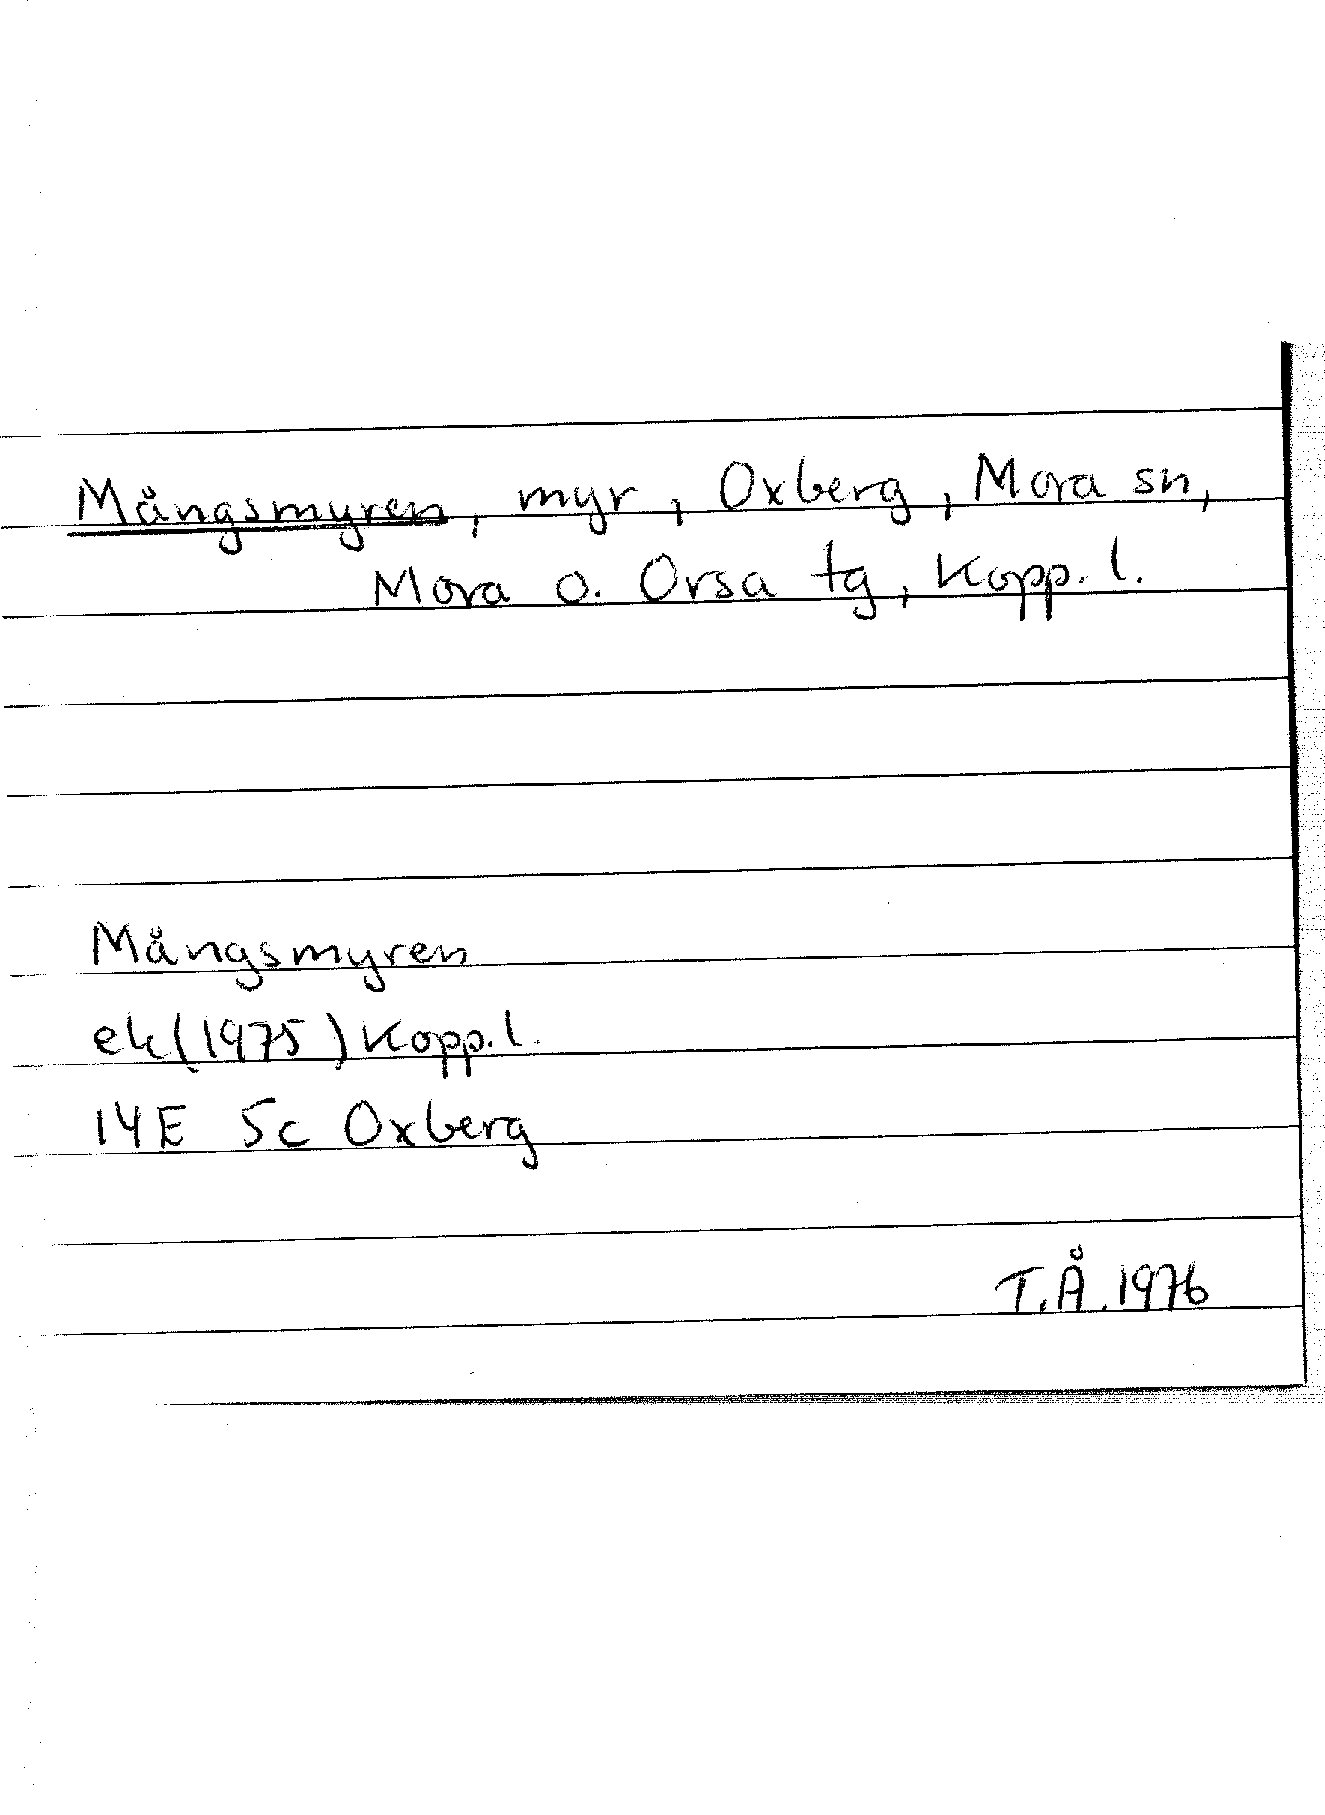 Mångsmyren, myr, Oxberg, Mora sn,
Mora o. Orsa tg, Kopp. l.
Mångsmyren
ek (1975) Kopp. l.
14E 5c Oxberg
T.Å. 1976